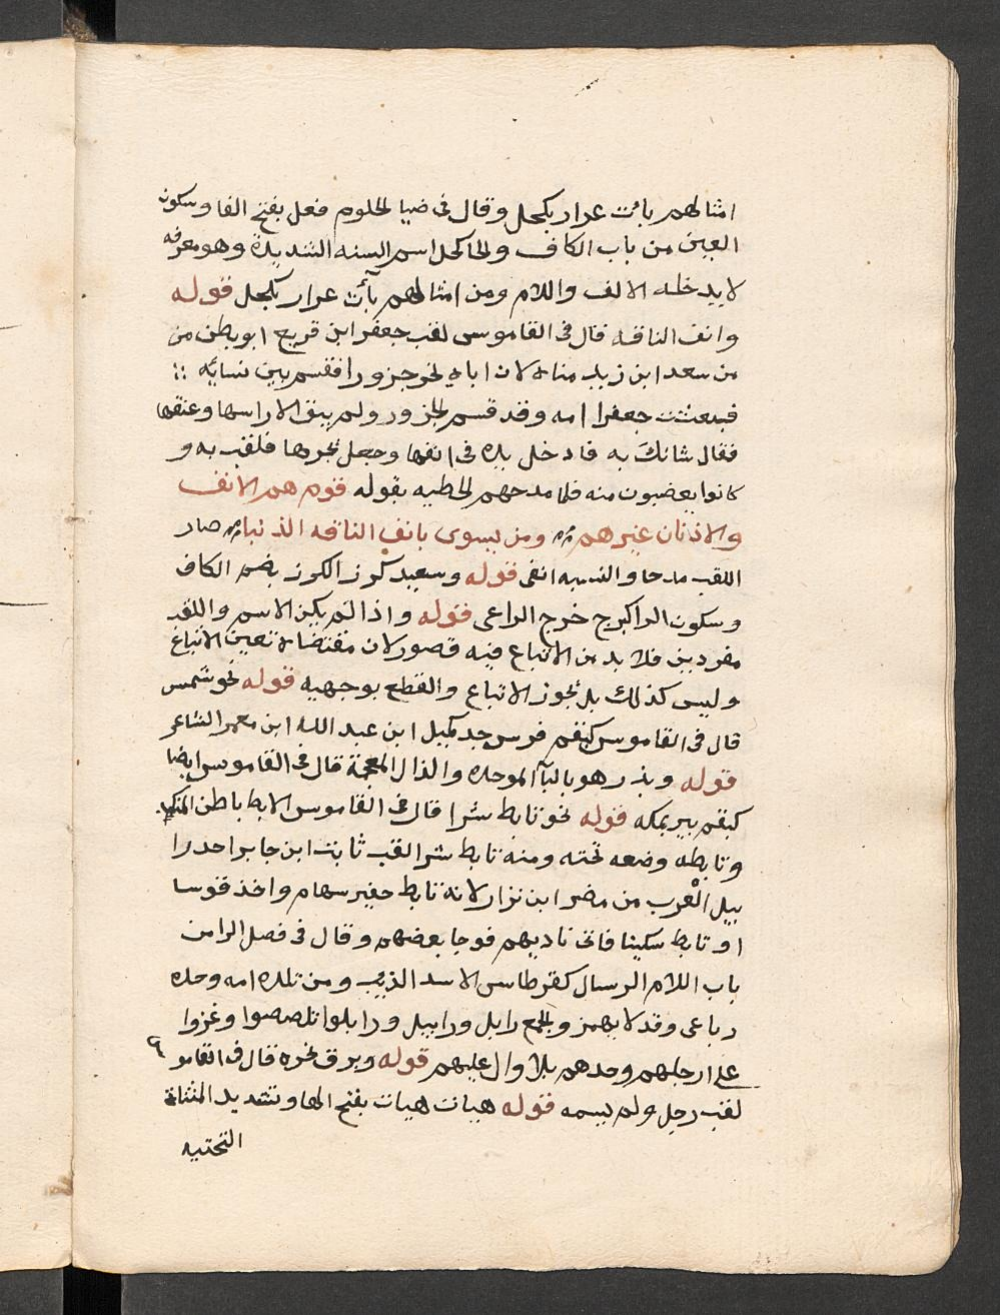 امثالهم باءت عرار بكحل وقال فى ضيا الحلوم فعل بفتح الفا وسكون
العين من باب الكاف والحا كحل اسم السنه الشديدة وهو معرفه
لا يدخله الالف واللام ومن امثالهم بآت عرار بكحل قوله
وانف الناقه قال فى القاموس لقب جعفر ابن قريع ابو بطن من
من سعد ابن زيد مناه لان اباه نحر جزورا فقسم بين نسائه
فبعثت جعفرا امه وقد قسم الجزور ولم يبق الا راسها وعنقها
فقال شانك به فادخل يده فى انفها وجعل يجرها فلقب به و
كانوا يغضبون منه فلما مدحهم الحطيه بقوله قوم هم الانف
والاذنان غيرهم ومن يسوى بانف الناقه الذنبا صار
اللقب مدحا والنسبه انفى قوله وسعيد كرز الكرز بضم الكاف
وسكون الرا كبرج خرج الراعى قوله واذا لم يكن الاسم واللقب
مفردين فلا بد من الاتباع فيه قصور لان مقتضاه تعين الاتباع
وليس كذلك بل يجوز الاتباع والقطع بوجهيه قوله نحو شمس
قال فى القاموس كبقم فرس جد جميل ابن عبد الله ابن معمر الشاعر
قوله وبذر هو بالبآ الموحده والذال المعجمة قال فى القاموس ايضا
كبقم بير بمكه قوله نحو تابط شرا قال فى القاموس الابط باطن المنكب
وتابطه وضعه تحته ومنه تابط شرا لقب ثابت ابن جابر احد را
بيل العرب من مضر ابن نزار لانه تابط جفير سهام واخذ قوسا
او تابط سكينا فاتى ناديهم فوجا بعضهم وقال فى فصل الرا من
باب اللام الريبال كقرطاس الاسد الذيب ومن تلده امه وحده
رباعى وقد لا يهمز والجمع رابل ورابيل ورابلوا تلصصوا وغزوا
على ارجلهم وحدهم بلا وال عليهم قوله وبرق نحره قال فى القامو
لقب رجل ولم يسمه قوله هيان هيان بفتح الها وتشديد المثناة
التحتيه